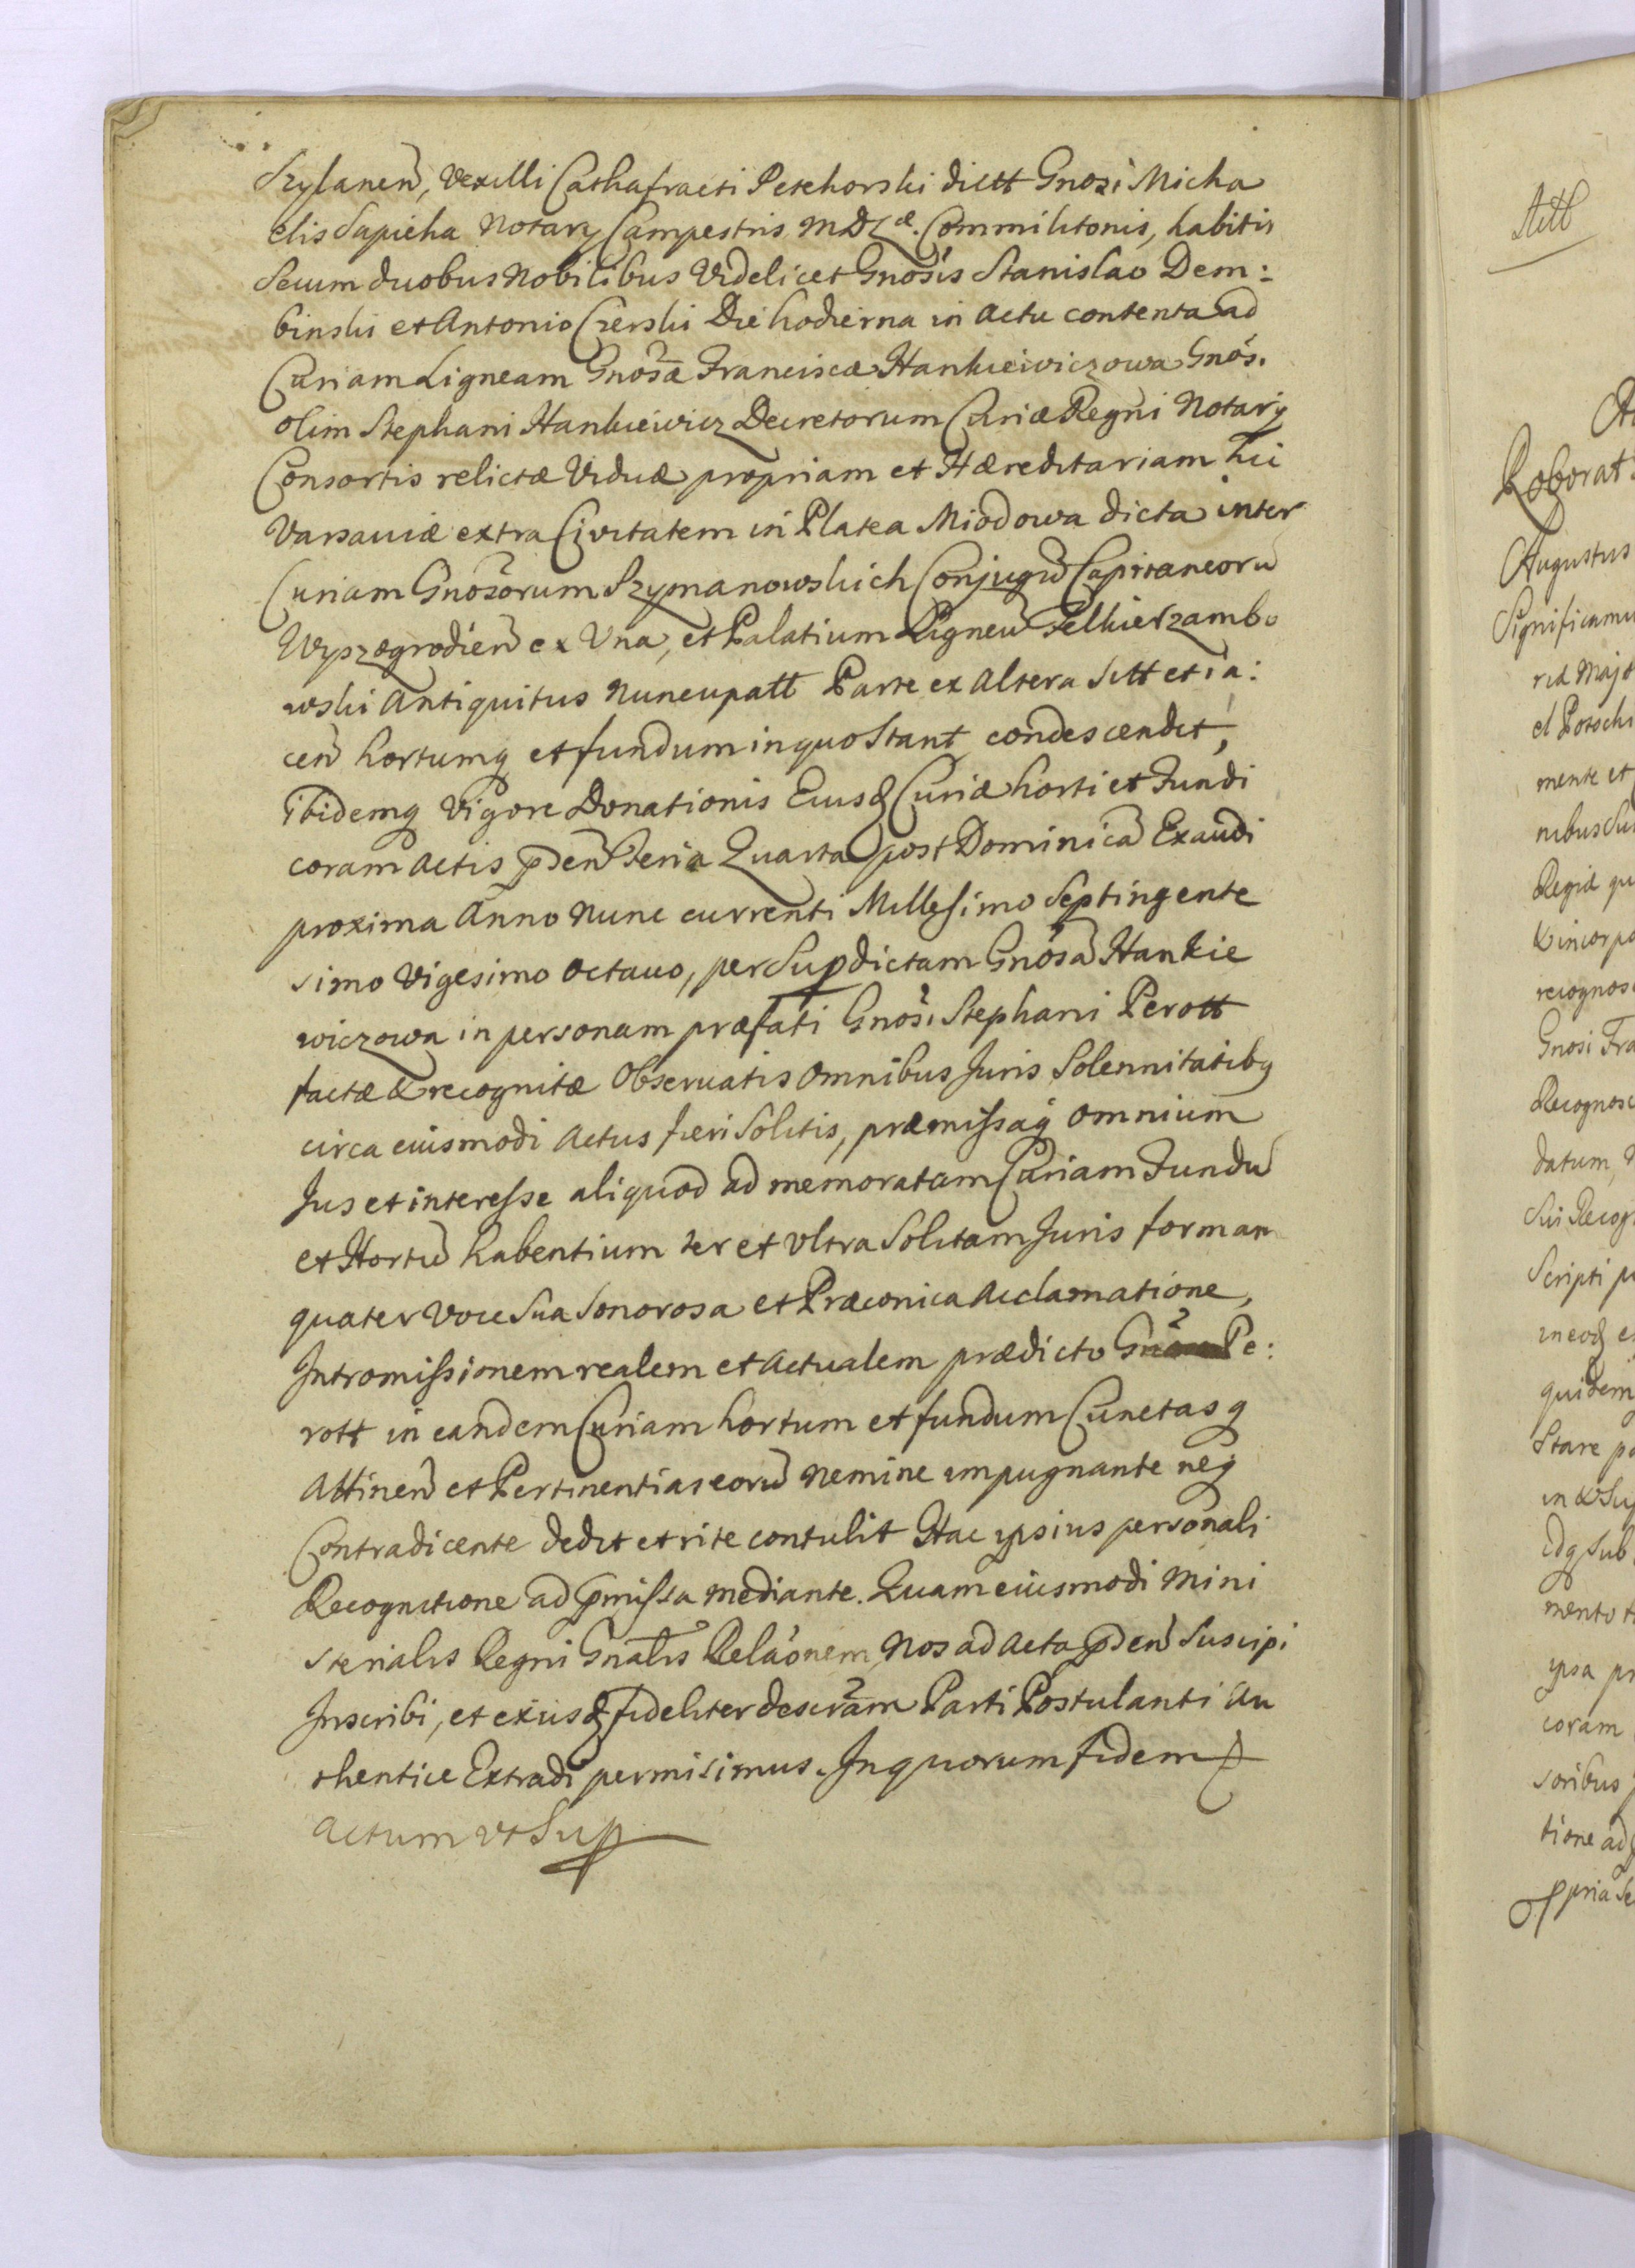 Szylanen, Vexilli Cathafracti Petehorski dictt Gnosi Micha
elis Sapieha Notarÿ Campestris M D Lae. Commilitonis, habitis
Secum duobus Nobilibus Videlicet Gnosis Stanislao Dem:
binski et Antonio Czerski Die hodierna in Actu contenta ad
Curiam Ligneam Gnosæ Franciscæ Hankieiviczowa Gnos.
olim Stephani Hankieivicz Decretorum Curiæ Regni Notarÿ
Consortis relictæ Viduæ propriam et Hæreditariam hic
Varsaviæ extra Civitatem in Platea Miodowa dicta inter
Curiam Gnosorum Szymanowskich Conjugũ Capitaneorũ
Wyszogrodien ex Una, et Palatium Ligneũ Felkierzambo
wski Antiquitus Nuncupatt Parte ex Altera Sitt et ia:
cen hortumq et fundum in quo Stant condescendit,
Ibidemq Vigore Donationis Eiusd Curiæ horti et Fundi
coram Actis pden Feria Quarta post Dominicã Exaudi
proxima Anno Nunc currenti Millesimo Septingente
simo Vigesimo Octavo, per Supdictam Gnosã Hankie
wiczowa in personam præfati Gnosi Stephani Perott
factæ & recognitæ Observatis Omnibus Juris Solennitatibq
circa eiusmodi Actus fieri Solitis, præmissaq Omnium
Jus et interesse aliquod ad memoratam Curiam Fundũ
et Hortũ habentium ter et Ultra Solitam Juris formam
quater Voce Sua Sonorosa et Præconica Acclamatione,
Intromissionem realem et Actualem prædicto Pe:
rott in eandem Curiam hortum et fundum Cunctasq
Attinen et Pertinentias eorũ Nemine impugnante neq
Contradicente dedit et rite contulit Hac ipsius personali
Recognitione ad pmissa mediante. Quam eiusmodi Mini
sterialis Regni Gnalis Relaonem, Nos ad Acta pden Suscipi
Inscribi, et ex iisd fideliter descram Parti Postulanti Au
thentice Extradi permisimus. In quorum fidem
Actum ut Sup
Roborat
Augustus
Significamu
mente et
Regiæ qu
recognos
Gnosi Fra
Recognosc
datum,
Sui Recog
Scripti p
quidem
Stare p
mento
ipsa pr
coram
soribus
tione ad